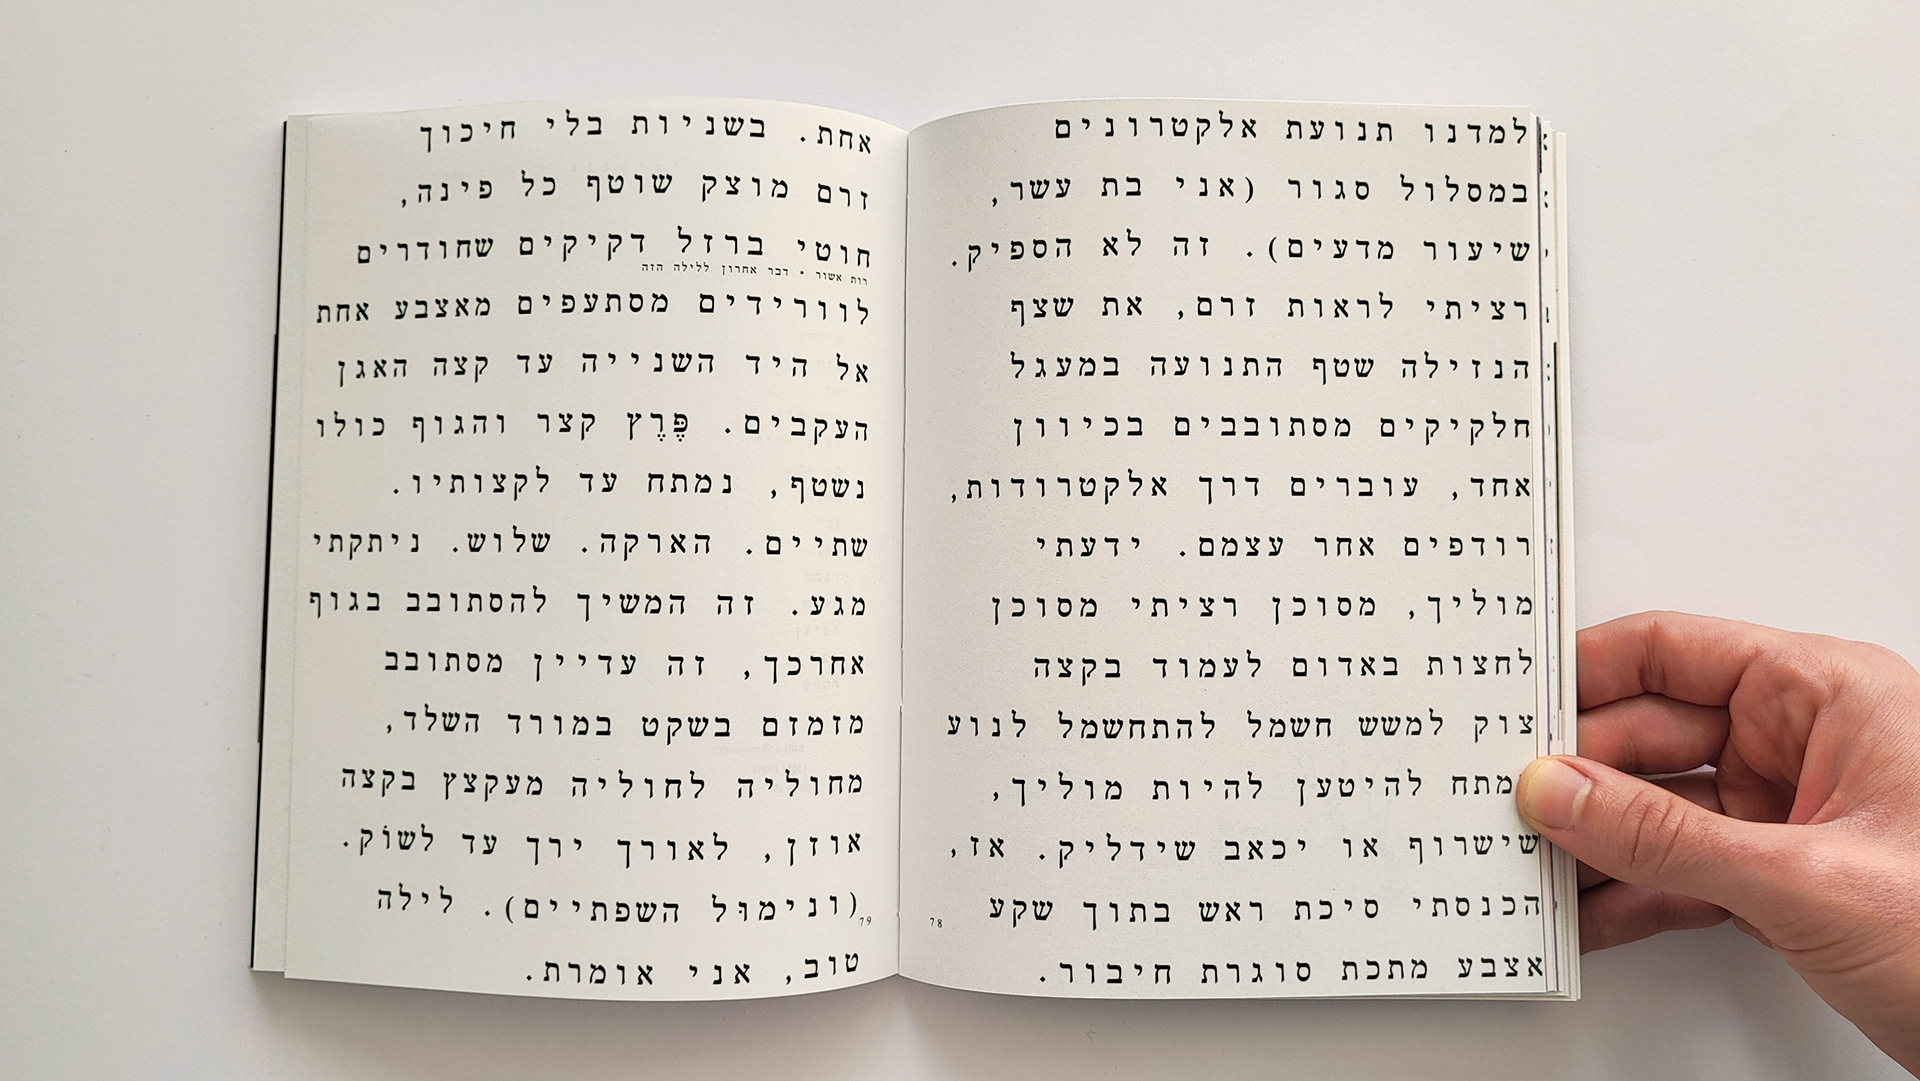 למדנו תנועת אלקטרונים
במסלול סגור (אני בת עשר,
שיעור מדעים). זה לא הספיק.
רציתי לראות זרם, את שצף
הנזילה שטף התנועה במעגל
חלקיקים מסתובבים בכיוון
אחד, עוברים דרך אלקטרודות,
רודפים אחר עצמם. ידעתי
מוליך, מסוכן רציתי מסוכן
לחצות באדום לעמוד בקצה
צוק למשש חשמל להתחשמל לנוע
להיטען להיות מוליך,
שישרוף או יכאב שידליק. אז,
הכנסתי סיכת ראש בתוך שקע
אצבע מתכת סוגרת חיבור.
78
אחת. בשניות בלי חיכוך
זרם מוצק שוטף כל פינה,
חוטי ברזל דקיקים שחודרים
רות אשור • דבר אחרון ללילה הזה
לוורידים מסתעפים מאצבע אחת
אל היד השנייה עד קצה האגן
העקבים. פֶּרֶץ קצר והגוף כולו
נשטף, נמתח עד לקצותיו.
שתיים. הארקה. שלוש. ניתקתי
מגע. זה המשיך להסתובב בגוף
אחרכך, זה עדיין מסתובב
מזמזם בשקט במורד השלד,
מחוליה לחוליה מעקצץ בקצה
אוזן, לאורך ירך עד לשוֹק.
(ונימוּל השפתיים). לילה
79
טוב, אני אומרת.